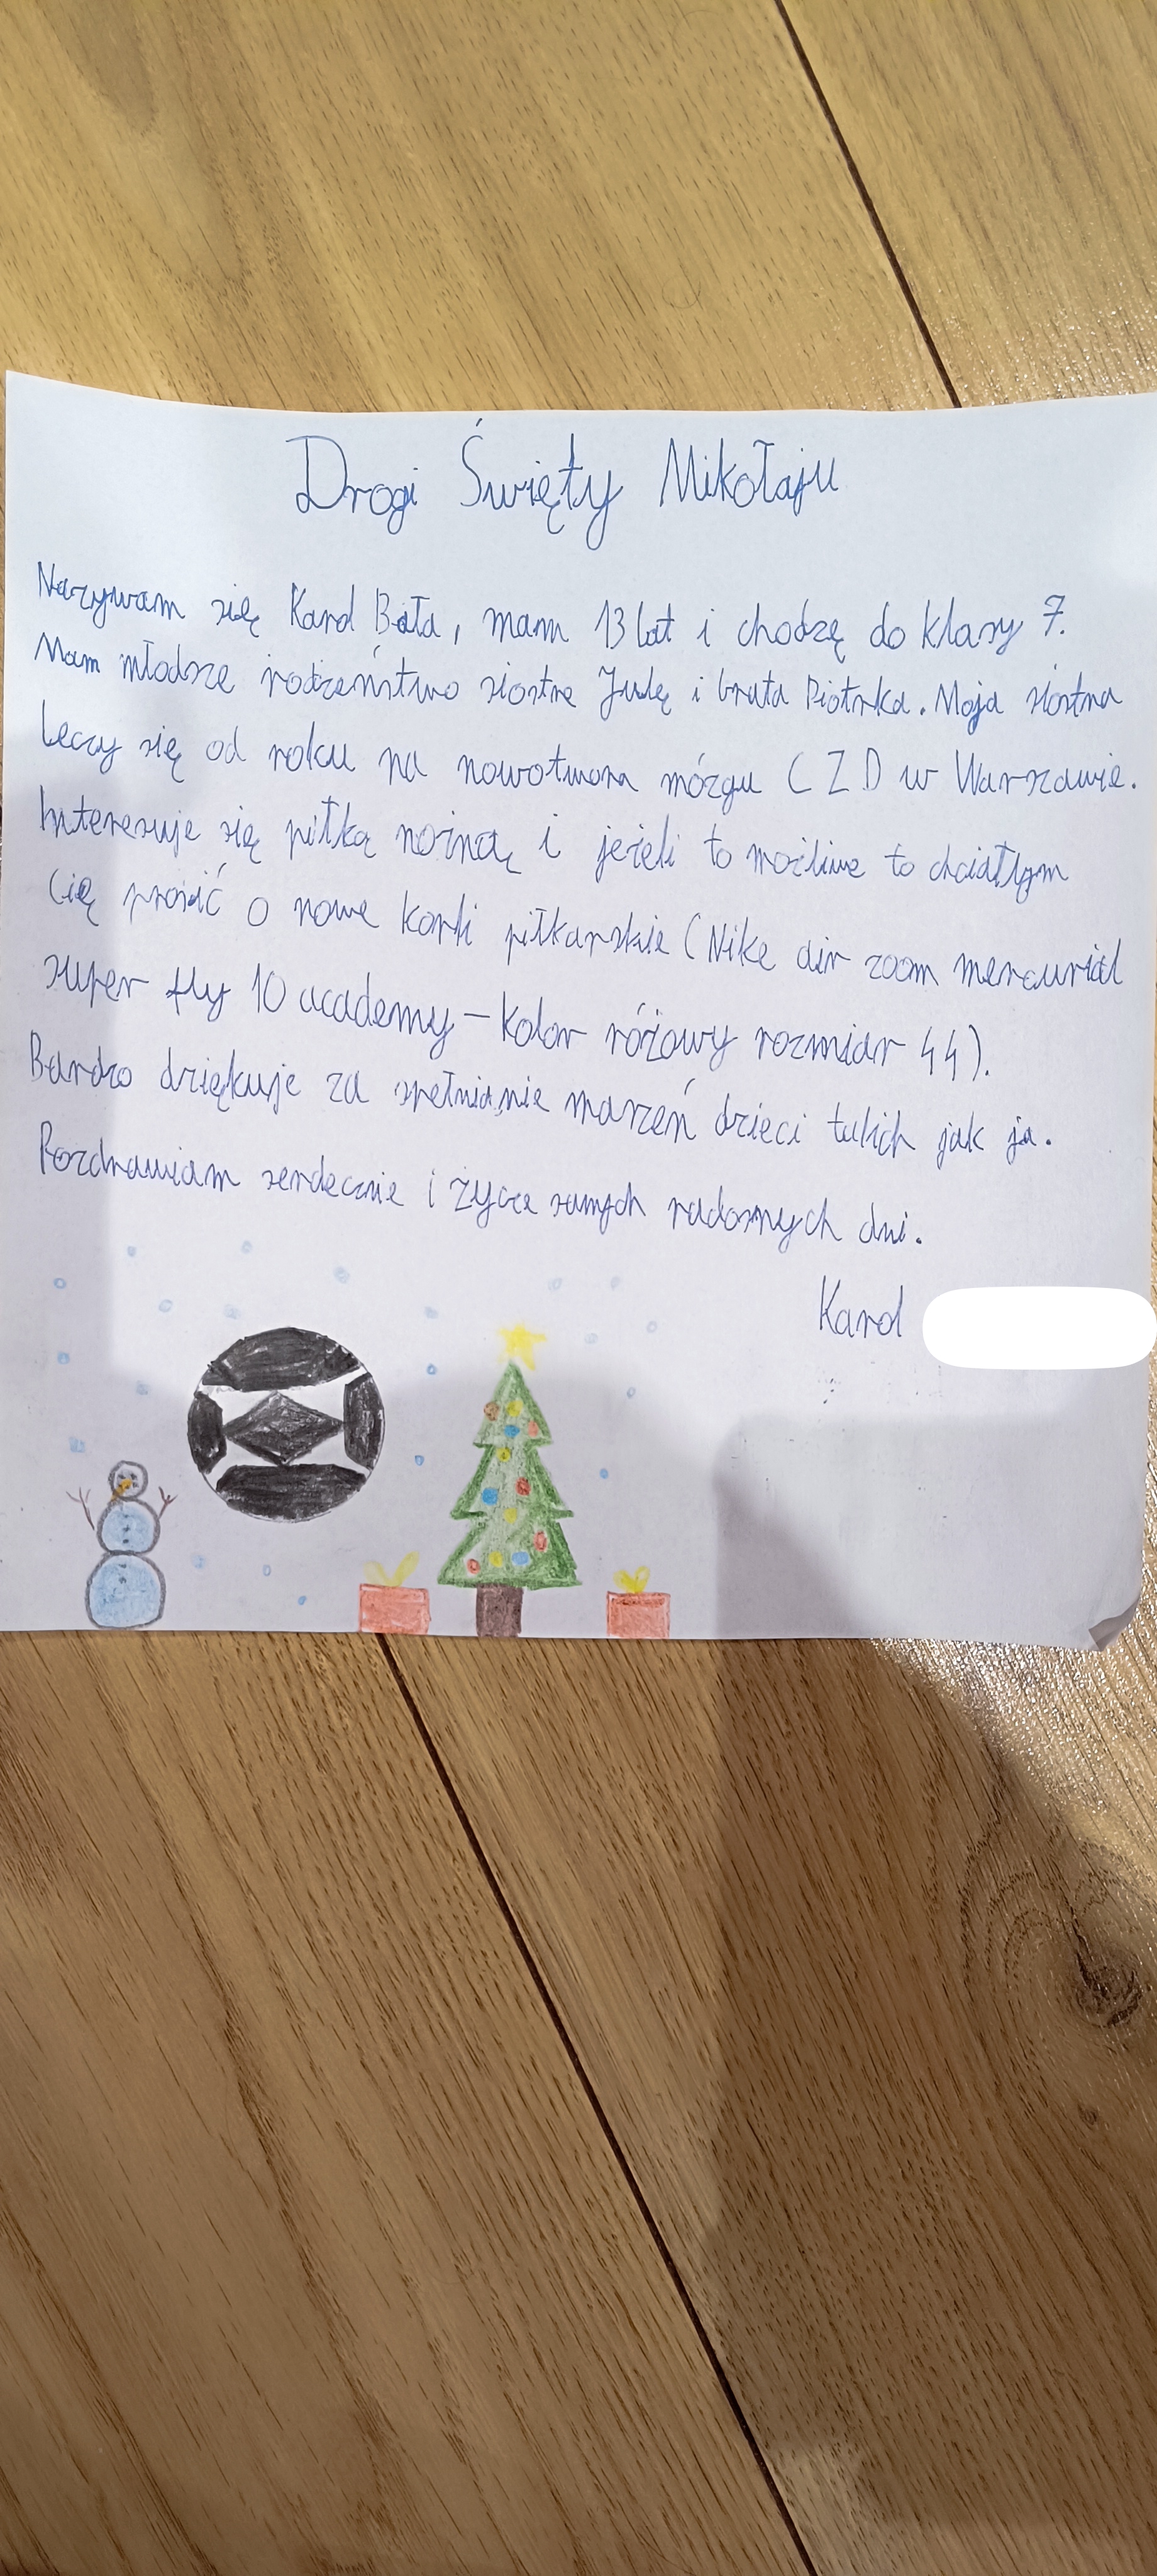 Drogi Święty Mikołaju
Nazywam się Karol Bała, mam 13 lat i chodzę do klasy 7.
Mam młodsze rodzeństwo siostrę Julę i brata Piotrka. Moja siostra
leczy się od roku na nowotwora mózgu CZD w Warszawie.
Interesuje się piłką nożną i jeżeli to możliwe to chciałbym
Cię prosić o nowe korki piłkarskie (Nike air zoom mercurial
super fly 10 academy - kolor różowy rozmiar 44).
Bardzo dziękuje za spełnianie marzeń dzieci takich jak ja.
Pozdrawiam serdecznie i życzę samych radosnych dni.
Karol